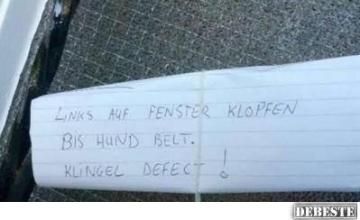 LINKS AUF FENSTER KLOPFEN
BIS HUND BELT.
KLINGEL DEFECT !
DEBESTE